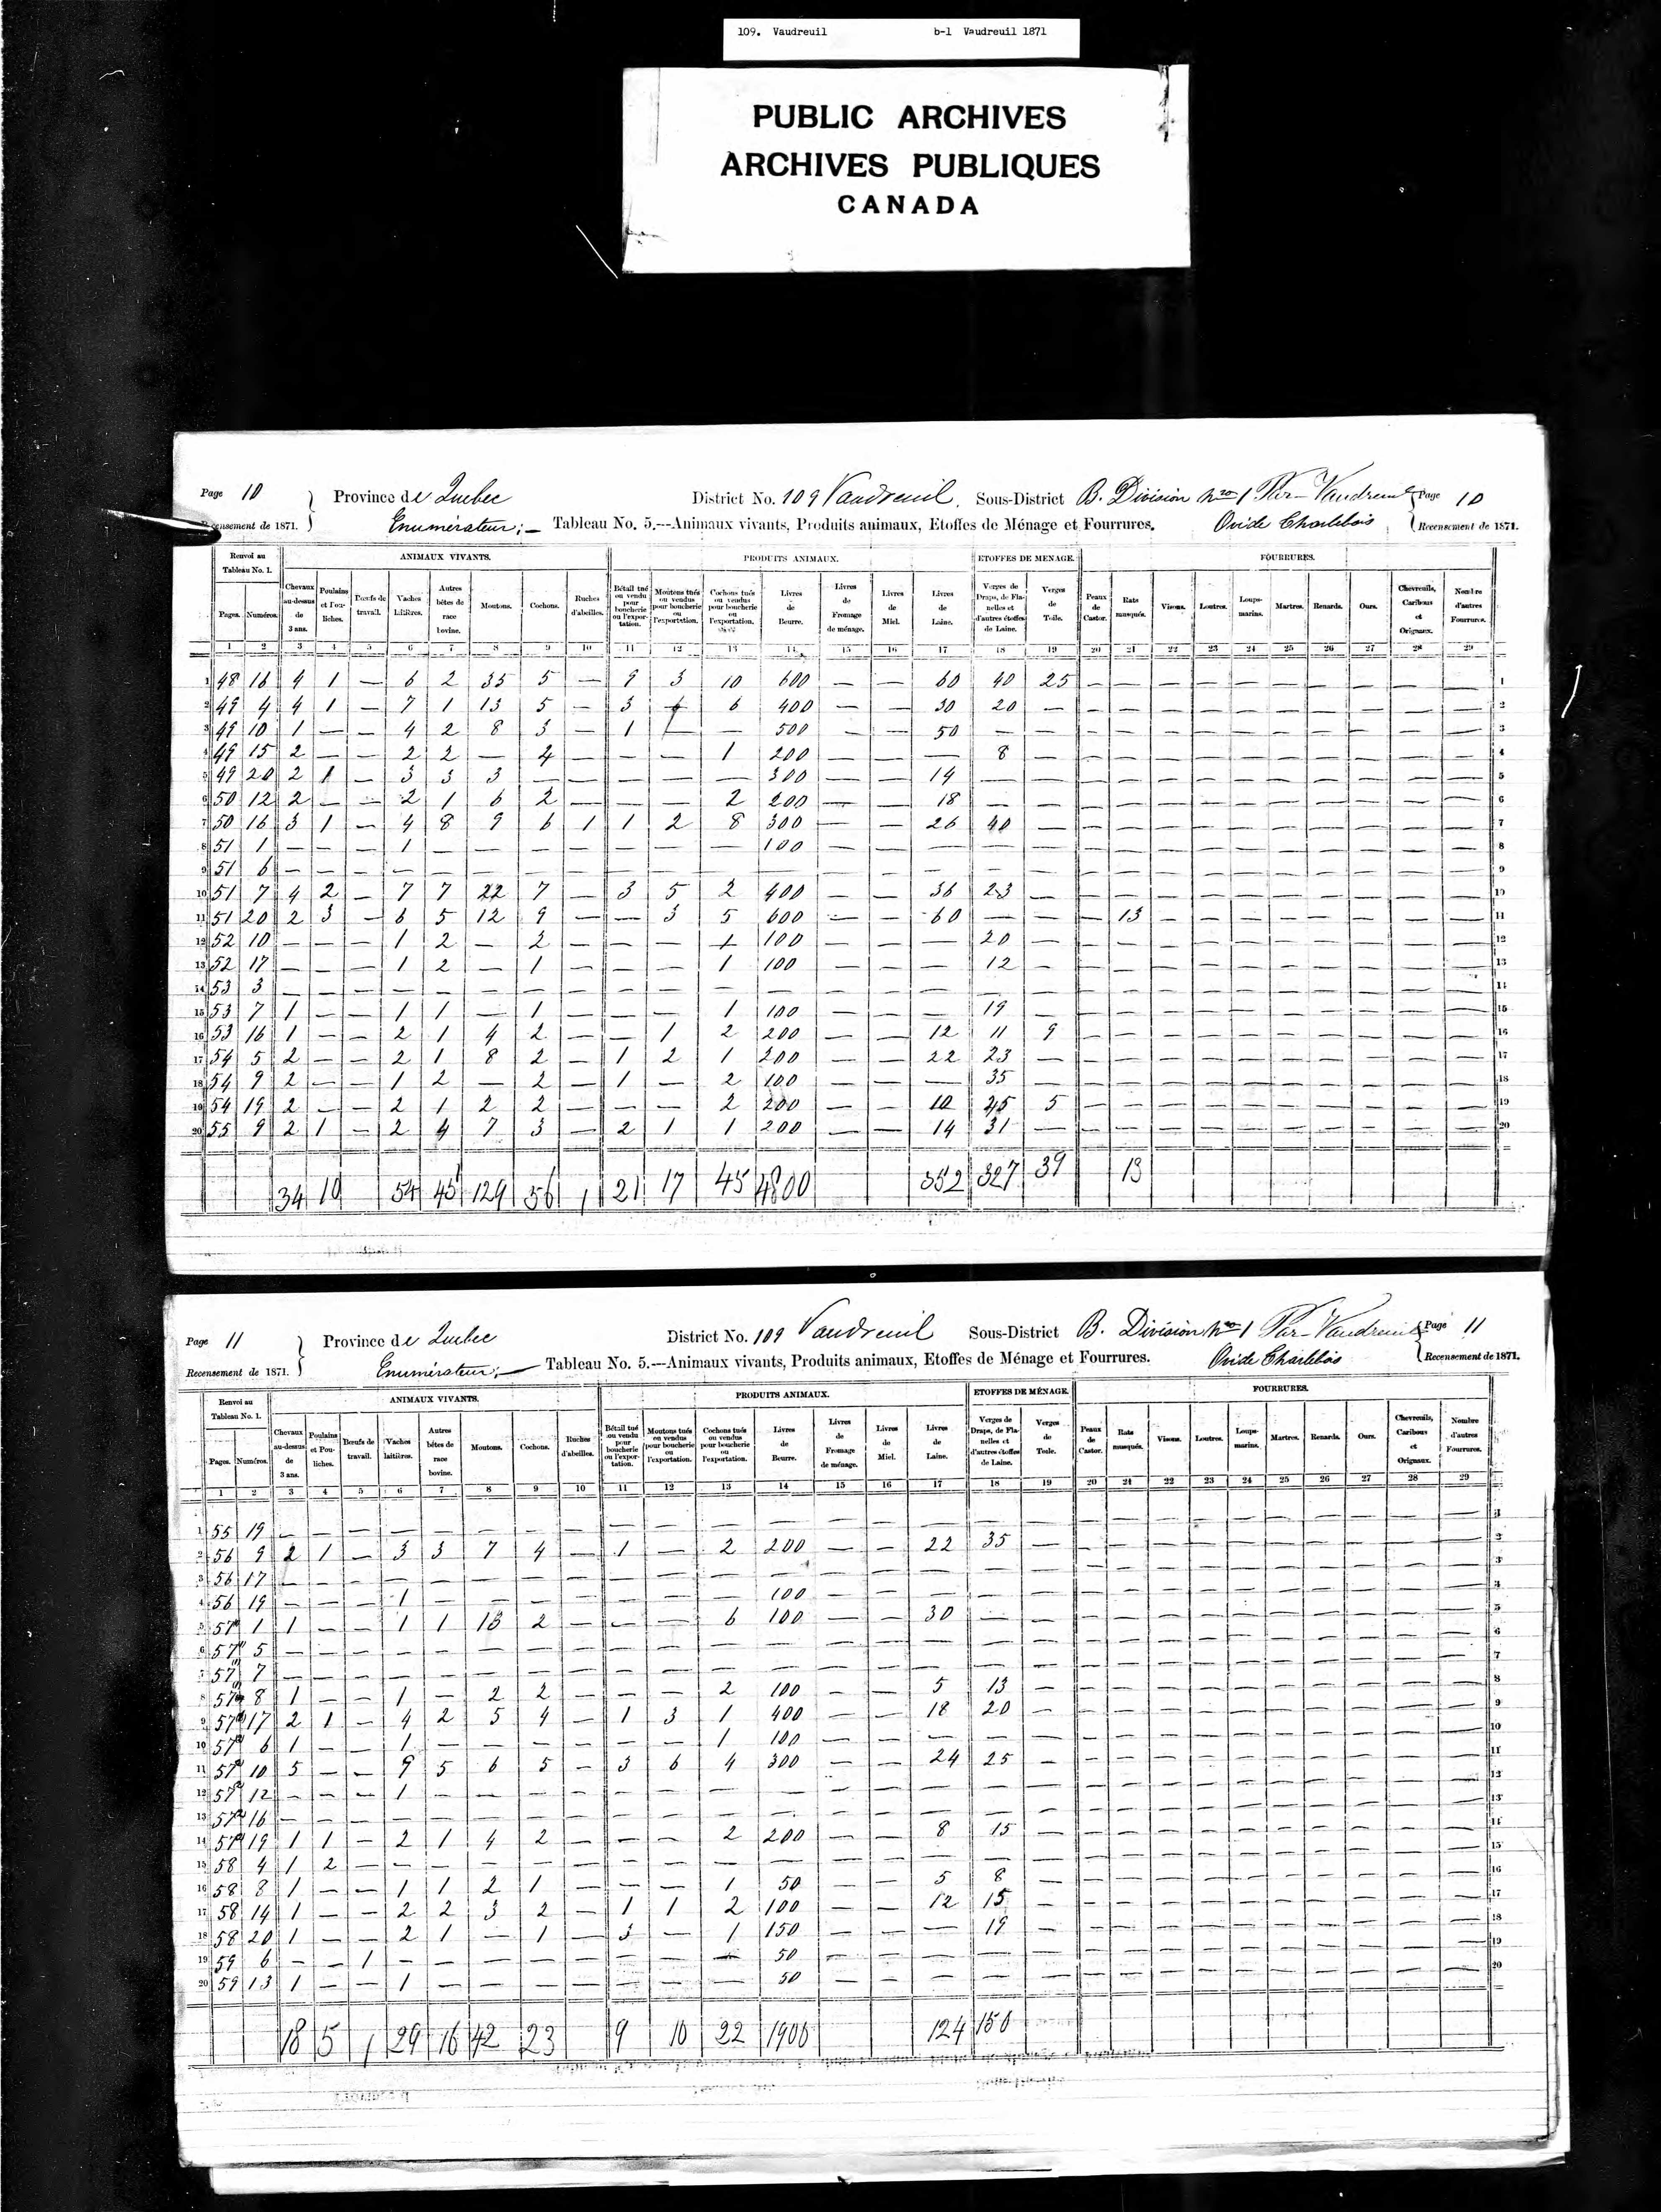 109. Vaudreuil b-1 Vaudreuil 1871
PUBLIC ARCHIVES
ARCHIVES PUBLIQUES
CANADA
Page 10 Province de Quebec District No. 109 Vaudreuil. Sous-District B. Division No 1 Par- Vaudreuil Page 10
Recensement de 1871. Enumérateur;— Tableau No. 5.—Animaux vivants, Produits animaux, Etoffes de Ménage et Fourrures. Ovide Charlebois Recensement de 1871.
Renvoi au Tableau No. 1. ANIMAUX VIVANTS. PRODUITS ANIMAUX. ETOFFES DE MENAGE. FOURRURES.
Pages. Numéros. Chevaux au-dessus de 3 ans. Poulains et Pouliches. Bœufs de travail. Vaches laitières. Autres bêtes de race bovine. Moutons. Cochons. Ruches d'abeilles. Bétail tué ou vendu pour boucherie ou l'exportation. Moutons tués ou vendus pour boucherie ou l'exportation. Cochons tués ou vendus pour boucherie ou l'exportation. Livres de Beurre. Livres de Fromage de ménage. Livres de Miel. Livres de Laine. Verges de Draps, de Flanelles et d'autres étoffes de Laine. Verges de Toile. Peaux de Castor. Rats musqués. Visons. Loutres. Loups-marins. Martres. Renards. Ours. Chevreuils, Caribous et Orignaux. Nombre d'autres Fourrures.
1 2 3 4 5 6 7 8 9 10 11 12 13 14 15 16 17 18 19 20 21 22 23 24 25 26 27 28 29
1 48 16 4 1 — 6 2 35 5 — 9 3 10 600 — — 60 40 25 — — — — — — — — — — 1
2 49 4 4 1 — 7 1 13 5 — 3 6 400 — — 30 20 — — — — — — — — — — — 2
3 49 10 1 — — 4 2 8 3 — 1 — — 500 — — 50 — — — — — — — — — — — — 3
4 49 15 2 — — 2 2 — 4 — — — 1 200 — — — 8 — — — — — — — — — — — 4
5 49 20 2 1 — 3 3 3 — — — — — 300 — — 14 — — — — — — — — — — — — 5
6 50 12 2 — — 2 1 6 2 — — — 2 200 — — 18 — — — — — — — — — — — — 6
7 50 16 3 1 — 4 8 9 6 1 1 2 8 300 — — 26 40 — — — — — — — — — — — 7
8 51 1 — — — 1 — — — — — — — 100 — — — — — — — — — — — — — — — 8
9 51 6 — — — — — — — — — — — — — — — — — — — — — — — — — — — 9
10 51 7 4 2 — 7 7 22 7 — 3 5 2 400 — — 36 23 — — — — — — — — — — — 10
11 51 20 2 3 — 6 5 12 9 — — 3 5 600 — — 60 — — — 13 — — — — — — — — 11
12 52 10 — — — 1 2 — 2 — — — 1 100 — — — 20 — — — — — — — — — — — 12
13 52 17 — — — 1 2 — 1 — — — 1 100 — — — 12 — — — — — — — — — — — 13
14 53 3 — — — — — — — — — — — — — — — — — — — — — — — — — — — 14
15 53 7 1 — — 1 1 — 1 — — — 1 100 — — — 19 — — — — — — — — — — — 15
16 53 16 1 — — 2 1 4 2 — — 1 2 200 — — 12 11 9 — — — — — — — — — — 16
17 54 5 2 — — 2 1 8 2 — 1 2 1 200 — — 22 23 — — — — — — — — — — — 17
18 54 9 2 — — 1 2 — 2 — 1 — 2 100 — — — 35 — — — — — — — — — — — 18
19 54 19 2 — — 2 1 2 2 — — — 2 200 — — 10 45 5 — — — — — — — — — — 19
20 55 9 2 1 — 2 4 7 3 — 2 1 1 200 — — 14 31 — — — — — — — — — — — 20
34 10 54 45 129 56 1 21 17 45 4800 352 327 39 13
Page 11 Province de Quebec District No. 109 Vaudreuil Sous-District B. Division No 1 Par- Vaudreuil Page 11
Recensement de 1871. Enumérateur;— Tableau No. 5.—Animaux vivants, Produits animaux, Etoffes de Ménage et Fourrures. Ovide Charlebois Recensement de 1871.
Renvoi au Tableau No. 1. ANIMAUX VIVANTS. PRODUITS ANIMAUX. ETOFFES DE MÉNAGE. FOURRURES.
Pages. Numéros. Chevaux au-dessus de 3 ans. Poulains et Pouliches. Bœufs de travail. Vaches laitières. Autres bêtes de race bovine. Moutons. Cochons. Ruches d'abeilles. Bétail tué ou vendu pour boucherie ou l'exportation. Moutons tués ou vendus pour boucherie ou l'exportation. Cochons tués ou vendus pour boucherie ou l'exportation. Livres de Beurre. Livres de Fromage de ménage. Livres de Miel. Livres de Laine. Verges de Draps, de Flanelles et d'autres étoffes de Laine. Verges de Toile. Peaux de Castor. Rats musqués. Visons. Loutres. Loups-marins. Martres. Renards. Ours. Chevreuils, Caribous et Orignaux. Nombre d'autres Fourrures.
1 2 3 4 5 6 7 8 9 10 11 12 13 14 15 16 17 18 19 20 21 22 23 24 25 26 27 28 29
1 55 19 — — — — — — — — — — — — — — — — — — — — — — — — — — —
2 56 9 2 1 — 3 3 7 4 — 1 — 2 200 — — 22 35 — — — — — — — — — — —
3 56 17 — — — — — — — — — — — — — — — — — — — — — — — — — — —
4 56 19 — — — 1 — — — — — — — 100 — — — — — — — — — — — — — — —
5 57 1 1 — — 1 1 13 2 — — — 6 100 — — 30 — — — — — — — — — — — — 5
6 57 5 — — — — — — — — — — — — — — — — — — — — — — — — — — — 6
7 57 7 — — — — — — — — — — — — — — — — — — — — — — — — — — — 7
8 57 8 1 — — 1 — 2 2 — — — 2 100 — — 5 13 — — — — — — — — — — — 8
9 57 17 2 1 — 4 2 5 4 — 1 3 1 400 — — 18 20 — — — — — — — — — — — 9
10 57 6 1 — — 1 — — — — — — 1 100 — — — — — — — — — — — — — — — 10
11 57 10 5 — — 9 5 6 5 — 3 6 4 300 — — 24 25 — — — — — — — — — — — 11
12 57 12 — — — 1 — — — — — — — — — — — — — — — — — — — — — — — 12
13 57 16 — — — — — — — — — — — — — — — — — — — — — — — — — — — 13
14 57 19 1 1 — 2 1 4 2 — — — 2 200 — — 8 15 — — — — — — — — — — — 14
15 58 4 1 2 — — — — — — — — — — — — — — — — — — — — — — — — — 15
16 58 8 1 — — 1 1 2 1 — — — 1 50 — — 5 8 — — — — — — — — — — — 16
17 58 14 1 — — 2 2 3 2 — 1 1 2 100 — — 12 15 — — — — — — — — — — — 17
18 58 20 1 — — 2 1 — 1 — 3 — 1 150 — — — 19 — — — — — — — — — — — 18
19 59 6 — — 1 — — — — — — — — 50 — — — — — — — — — — — — — — — 19
20 59 13 1 — — 1 — — — — — — — 50 — — — — — — — — — — — — — — — 20
18 5 1 29 16 42 23 9 10 22 1900 124 150